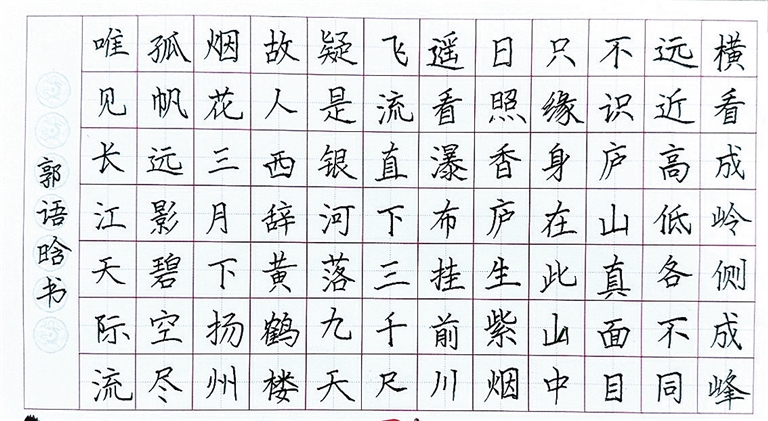 横看成岭侧成峰
远近高低各不同
不识庐山真面目
只缘身在此山中
日照香庐生紫烟
遥看瀑布挂前川
飞流直下三千尺
疑是银河落九天
故人西辞黄鹤楼
烟花三月下扬州
孤帆远影碧空尽
唯见长江天际流
郭语晗书